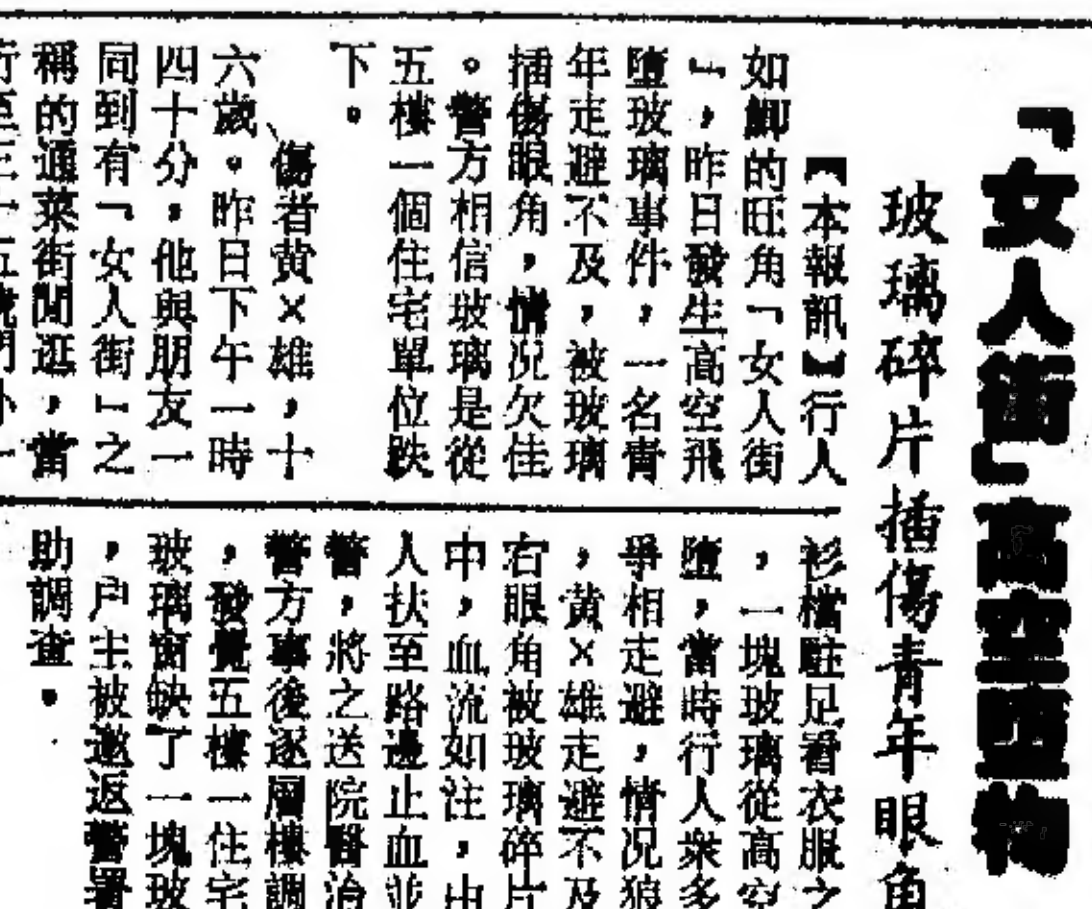 「女人街」高空墮物
玻璃碎片插傷青年眼角
【本報訊】行人
如鯽的旺角「女人街
」，昨日發生高空飛
墮玻璃事件，一名青
年走避不及，被玻璃
插傷眼角，情況欠佳
。警方相信玻璃是從
五樓一個住宅單位跌
下。
傷者黃×雄，十
六歲。昨日下午一時
四十分，他與朋友一
同到有「女人街」之
稱的通菜街閒逛，當
衫檔駐足看衣服之
，一塊玻璃從高空
墮，當時行人衆多
爭相走避，情況狼
，黃×雄走避不及
右眼角被玻璃碎片
中，血流如注，由
人扶至路邊止血並
警，將之送院醫治
警方事後逐層樓調
，發覺五樓一住宅
玻璃窗缺了一塊玻
，戶主被邀返警署
助調查。